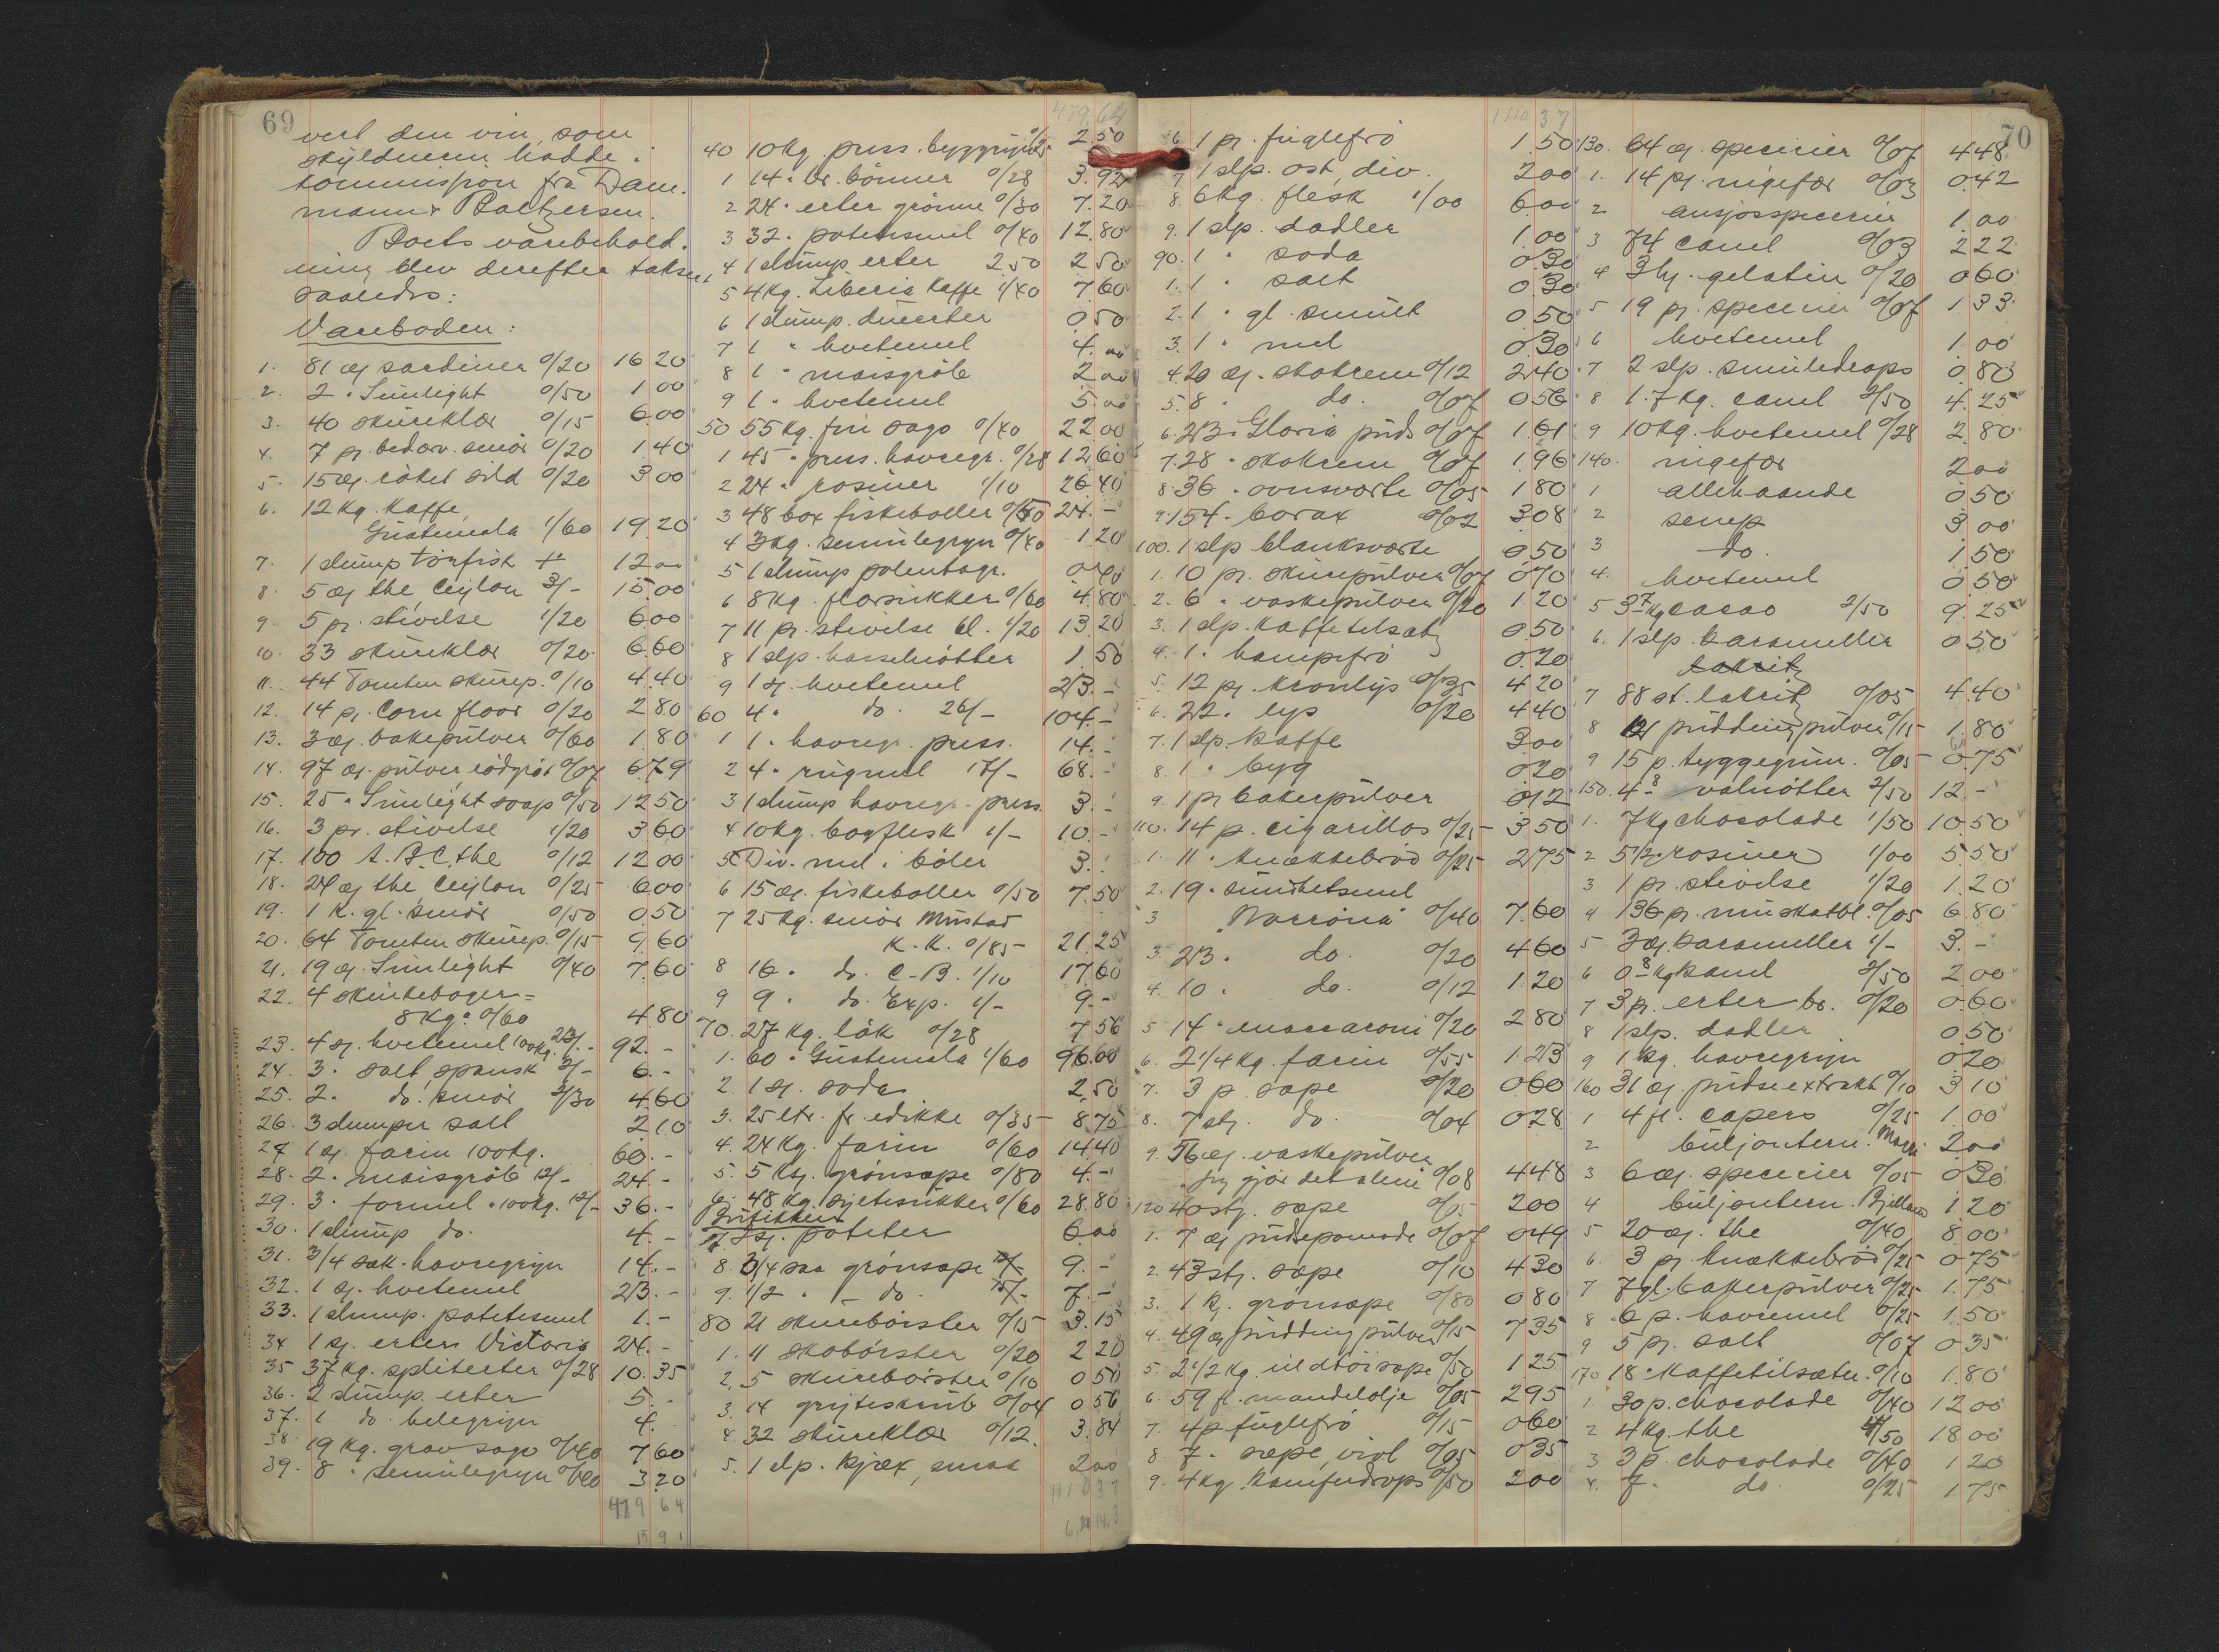 69
vert den vin, som
skyldneren hadde i
kommission fra Dam-
mann & Baetzersen.
Boets varebehold-
ning blev derefter takser
saaledes:
Vareboden:
1. 81 æs sardiner 0/20 16 20
2. 2 " Sunlight 0/50 1 00
3. 40 skureklær 0/15 6 00
4. 7 pr. bedærv. smör 0/20 1 40
5. 15 æs. röket sild 0/20 3 00
6. 12 kg. kaffe,
Guatemala 1/60 19.20
7. 1 slump törfisk 12 00
8. 5 æs the Ceylon 3/- 15.00
9. 5 pr. stivelse 1/20 6 00
10. 33 skureklær 0/20 6.60
11. 44 Tomten skurep. 0/10 4.40
12. 14 p. Corn floor 0/20 2 80
13. 3 æs. bakepulver 0/60 1.80
14. 97 æs. pulver rödgröt 0/07 6.79
15. 25 " Sunlight soap 0/50 12 50
16. 3 pr. stivelse 1/20 3 60
17. 100 A.B.C. the 0/12 12 00
18. 24 æs the Ceylon 0/25 6 00
19. 1 k. gl. smör 0/50 0 50
20. 64 Tomten skurep. 0/15 9.60
21. 19 æs. Sunlight 0/40 7.60
22. 4 skinkeboger =
8 kg. à 0/60 4.80
23. 4 sj. hvetemel 100 kg. 23/- 92.-
24. 3 " salt spansk 2/- 6.-
25. 2 " do. smör 2/30 4.60
26. 3 slumper salt 2 10
27 1 sj. farin 100 kg. 60.-
28. 2 " maisgröb 12/- 24.-
29. 3 " formel " 100 kg. 12/- 36.-
30. 1 slump do. 4.-
31. 3/4 sæk havregryn 14.-
32. 1 sj. hvetemel 23.-
33. 1 slump. potetesmel 1.-
34 1 sj. erter Victoria 24.-
35 37 kg. spliterter 0/28 10.35
36. 2 slump. erter 5.-
37. 1 do. helegryn 4.
38. 19 kg. grov sago 0/40 7 60
39. 8 " semulegryn 0/40 3 20
479 64
15 9 1
479.64
40 10 kg. press. byggryn 0/25 2.50
1 14 " br. bönner 0/28 3.92
2 24 " erter grönne 0/30 7.20
3 32 " potetesmel 0/40 12.80
4 1 slump erter 2.50 2 50
5 4 kg. Liberia kaffe 1/40 7.60
6 1 slump. dueerter 0 50
7 1 " hvetemel 4.00
8 1 " maisgröb 2 00
9 1 " hvetemel 5.00
50 55 kg. fin sago 0/40 22 00
1 45 " press. havregr. 0/28 12.60
2 24 " rosiner 1/10 26.40
3 48 box fiskeboller 0/50 24.-
4 3 kg. semulegryn 0/40 1.20
5 1 slump polentagr. 0 40
6 8 kg. florsukker 0/60 4.80
7 11 pr. stivelse bl. 1/20 13.20
8 1 slp. hasselnötter 1.50
9 1 sj. hvetemel 23.-
60 4 " do. 26/- 104.-
1 1 " havregr. press. 14.-
2 4 " rugmel 17/- 68.-
3 1 slump havregr. press. 3.-
4 10 kg. bogflesk 1/- 10.-
5 Div. mel i böler 3.
6 15 æs. fiskeboller 0/50 7.50
7 25 kg. smör Mustad
K.K. 0/85 21.25
8 16 " do. C-B. 1/10 17.60
9 9 " do. Exp. 1/- 9.-
70. 27 kg. lök 0/28 7.56
1. 60 " Guatemala 1/60 96.00
2. 1 sj. soda 2.50
3. 25 ltr. fr. edikke 0/35 8.75
4. 24 kg. farin 0/60 14.40
5. 5 ksj. grönsæpe 0/80 4.-
6. 48 kg. sjetesukker 0/60 28.80
Butikken
7 2 sj. poteter 6.00
8. 3/4 grönsæpe 12/- 9.-
9. 1/2 " - do. 15/- 7.-
80 21 skurebörster 0/15 3.15
1. 11 skobörster 0/20 2 20
2. 5 skurebörster 0/10 0 50
3. 14 gryteskrub 0/04 0.56
4. 32 skureklær 0/12. 3.84
5. 1 slp. kjæx, smaa 2 00
1110 37
1110 37
6 1 pr. fuglefrö 1.50
7 1 slp. ost, div. 2 00
8. 6 kg. flesk 1/00 6.00
9. 1 slp. dadler 1.00
90. 1 " soda 0.30
1. 1 " salt 0 30
2. 1 " gl. smult 0 50
3. 1 " mel 0 30
4. 20 æs. skokrem 0/12 2.40
5. 8 " do. 0/07 0 56
6. 23 " Gloria puds 0/07 1.61
7. 28 " skokrem 0/07 1.96
8. 36 " ovnsværte 0/05 1 80
9. 154 " borax 0/02 3.08
100. 1 slp. blanksværte 0.50
1. 10 pr. skurepulver 0/07 0 70
2. 6 " vaskepulver 0/20 1.20
3. 1 slp. kaffetilsatz 0.50
4. 1 " hampefrö 0.20
5. 12 pr. kronlys 0/35 4 20
6. 22 " lys 0/20 4 40
7. 1 slp. kaffe 3.00
8. 1 " byg 0.20
9. 1 pr bakerpulver 0 12
110. 14 p. cigarillos 0/25 3.50
1. 11 " knækkebröd 0/25 2.75
2. 19 " sundhetsmel
3 "Norröna" 0/40 7.60
3. 23 " do. 0/20 4 60
4. 10 " do. 0/12 1 20
5 14 " maccaroni 0/20 2 80
6. 2 1/4 kg. farin 0/55 1.23
7. 3 p. sæpe 0/20 0 60
8. 7 stj. do 0/04 0 28
9. 56 æs. vaskepulver
"Jeg gjör det alene" 0/08 4 48
120 40 stj. sæpe 0/05 2 00
1. 7 æs pudsepomade 0/07 0 49
2. 43 stj. sæpe 0/10 4 30
3. 1 kj. grönsæpe 0/80 0 80
4. 49 æs puddingpulver 0/15 7 35
5. 2 1/2 kg. uldtöisæpe 0/50 1 25
6. 59 fl. mandelolje 0/05 2 95
7. 4 p fuglefrö 0/15 0 60
8. 7 " sæpe, viol 0/05 0 35
9. 4 kg. kamferdrops 0/50 2 00
70
130. 64 æs. specerier 0/07 4 48
1. 14 pj. ingefær 0/03 0.42
2 ansjosspecerier 1.00
3 74 canel 0/03 2 22
4 3 hj. gelatin 0/20 0 60
5 19 pj. specerier 0/07 1 33
6 hvetemel 1.00
7 2 slp. smuledrops 0.80
8 1.7 kg. canel 2/50 4.25
9 10 kg. hvetemel 0/28 2.80
140. ingefær 2 00
1 allehaande 0 50
2 senep 3 00
3 do. 1.50
4. hvetemel 0 50
5 3.7 kg cacao 2/50 9.25
6. 1 slp. karameller 0 50
lakritz
7 88 st. lakritz 0/05 4 40
8 12 puddingpulver 0/15 1.80
9 15 p. tyggegum. 0/05 0.75
150. 4.8 valnötter 2/50 12.-
1. 7 kg chocolade 1/50 10 50
2 5 1/2 " rosiner 1/00 5 50
3 1 pr. stivelse 1/20 1.20
4 136 pr. muskatbl. 0/05 6 80
5 3 æs. karameller 1/- 3.-
6 0.8 kg kanel 2/50 2 00
7 3 pr. erter br. 0/20 0.60
8 1 slp. dadler 0 50
9 1 kg. havregryn 0.20
160 31 æs. pudseextrakt 0/10 3 10
1 4 fl. capers 0/25 1.00
2 buljontern. Maggi 2 00
3 6 æs. specerier 0/05 0 30
4 buljontern. Bjelland 1.20
5 20 æs. the 0/40 8 00
6. 3 pj. knækkebröd 0/25 0 75
7 7 gl. bakerpulver 0/25 1.75
8 6 p. havremel 0/25 1.50
9 5 pr. salt 0/07 0 35
170 18 " kaffetilsætn. 0/10 1.80
1. 30 p. chocolade 0/40 12 00
2 4 kg. the 4/50 18 00
3 3 p. chocolade 0/40 1 20
4. 7 " do. 0/25 1 75